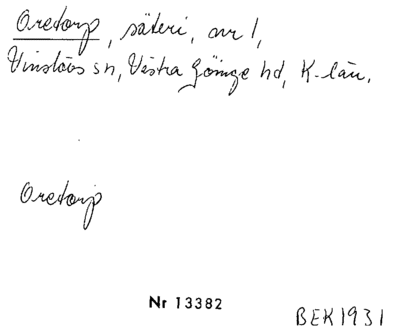 Oretorp, säteri, nr 1,
Vinslövs sn, Västra Göinge hd, K-län.
Oretorp
Nr 13382
BEK1931